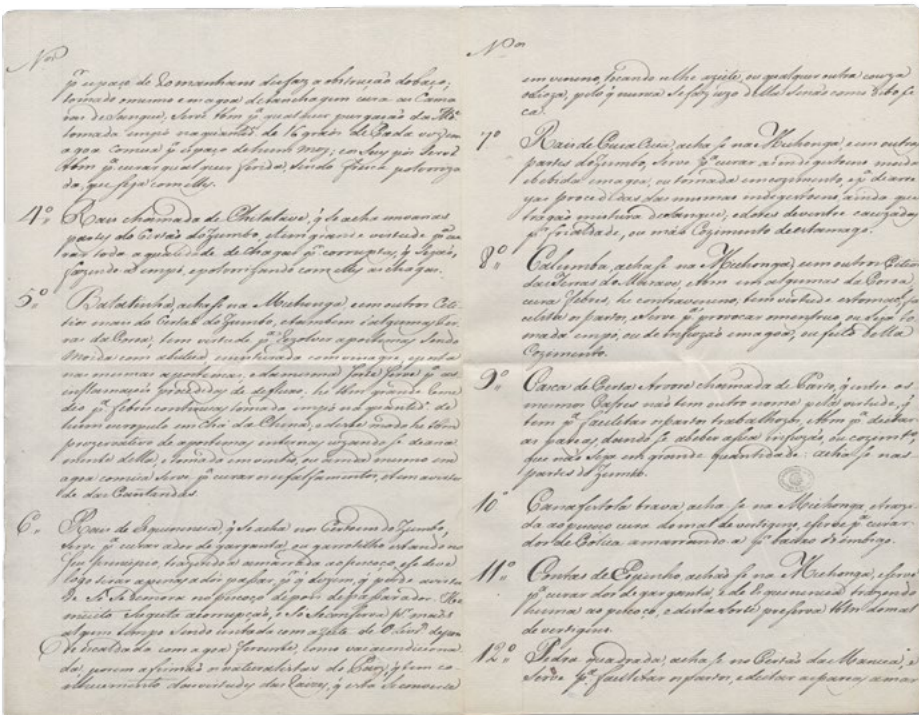 Nos
pr espaço de 20 manhans desfaz a obstrução do baço;
tomada o mesmo em agoa de tanchagem cura as Cama
ras de Sangue, serve tbm pa qualquer purgação da
tomada em pó na quantide de 16 grãos de
agoa comua pr espaço de hum mez; e o Seu pó Serve
tbm pa curar qualquer ferida, sendo
da, que seja com elle.
4º Rais chamada de Chitatave, q se acha em varias
partes do Certão do Zumbo, e tem grande virtude pa cu
rar toda a qualidade de chagas
fazendo as em pó, e polvorizando com elles as chagas.
5º Batatinha, acha se na Michonga, e em outros Citi
tios mais do Certão do Zumbo, e tambem em algumas ter
ras da Coroa, tem virtude pa rezolver apostemas sendo
moida com misturada com vinagre, e posta
nas mesmas apostemas, e da mesma sorte serve pa as
inflamaçoes procedidas de defluxo, he tbm grande reme
dio pa febres continuas tomada em pó na quantide de
hum escropulo em chá da China, e deste modo he tbm
prezervativo de apostemas internas, uzando se
mente della, e tomada em vinho, ou ainda mesmo em
agoa comua serve pa curar
de das Quartandas.
6º Rais de Squinencia, q se acha nos Certoens do Zumbo,
serve pa curar a dor de garganta ou garrotilho estando no
seu principio, trazendo a amarrada ao pescoço, e se deve
logo tirar apenas a dor passar, pr q dizem, q perde a virtu
de Se Se demora no pescoço depois de passar a dor. He
muito Sugeita a corrupção, e Só Se conserva pr mais
algum tempo Sendo untada com azeite de
de escaldada com agoa fervente,
da, porem afirmão os naturalistas do Paiz, q tem co
nhecimento das virtudes das Raizes, q esta Se converte
Nos
em veneno, tocando se lhe azeite, ou qualquer outra couza
oleoza, pelo q nunca se faz uzo della Senão como
ca.
7º Rais de acha se na Michonga, e em outras
partes do Zumbo, serve pa curar as indigestoens moida
e bebida em agoa, ou tomada em cozimento, e pa diarre
yas procedidas das mesmas indigestoens, ainda que
tragão mistura de sangue, e dores de ventre cauzadas
pr frialdade, ou máo Cozimento de estamago.
8º Calumba, acha se na Michonga, e em outros Citios
das Terras do Marave, e tbm em algumas da Coroa,
cura febres, he contraveneno, tem virtude estomatica,
serve pa provocar menstruo, ou seja to
mada em pó, ou de infuzão em agoa, ou feito della
Cozimento.
9º Casca de Certa Arvore chamada de Parto, q entre os
mesmos Cafres não tem outro nome pela virtude, q
tem pa facilitar os partos trabalhozos, e tbm pa deitar
as pareas, dando se a beber a Sua infuzão, ou cozimto
que não seja em grande quantidade: acha se nas
partes do Zumbo.
10º Canafistola brava, acha se na Michonga, e traze
da ao pescoço cura do mal de vertigens, e serve pa curar
dor de Colica amarrando a pr baixo do embigo.
11º Contas de Espinho, achão se na Michonga, e serve
pa curar dor de garganta, e de Esquinencia trazendo
huma ao pescoço, e desta sorte preserva tbm do mal
de vertigens.
12º Pedra quadrada, acha se no Certão da Manica, e
Serve pa facilitar os partos, e deitar as pareas amar